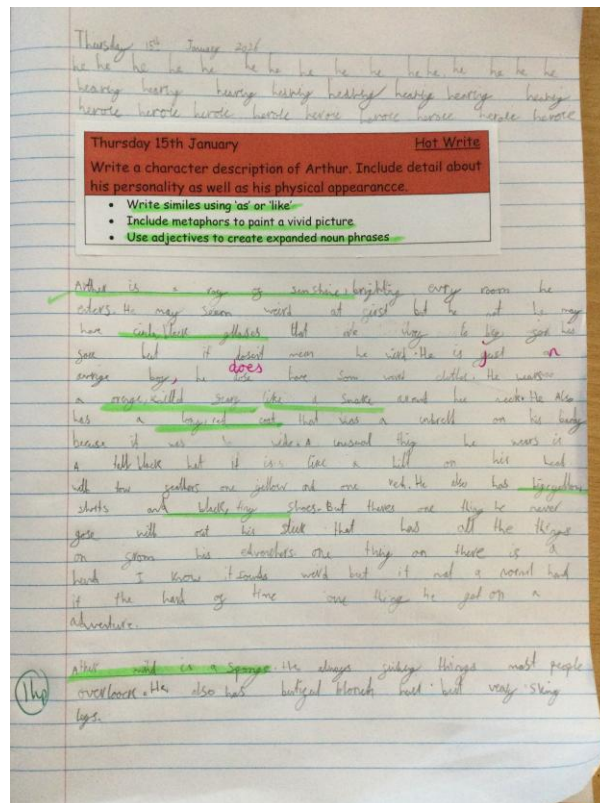 Thursday 15th January 2026
he he he he he he he he he he he he. he he he he
hearty hearty hearty hearty hearty hearty hearty hearty
herole herole herole herole herole herole herole herole herole
Thursday 15th January Hot Write
Write a character description of Arthur. Include detail about
his personality as well as his physical appearancce.
• Write similes using 'as' or 'like'
• Include metaphors to paint a vivid picture
• Use adjectives to create expanded noun phrases
Arthur is a ray of sunshine, brighting every room he
eters. He may seem weird at first but he not he may
have black glasses that are to big for his
face but it dosent mean he werd. He is just an
does
boy, he have som weird clothes. He
a orange, scarf like a snake around his neck. He Also
has a long, red coat, that was a on his body
because it was so wide. A unusual thing he wears is
A tall black hat it is like a hill on his head
with tow feathers one yellow and one red. He also has big, yellow
shorts and black, tiny shoes. But theres one thing he never
gose with out his that has all the things
on from his one thing on there is a
hand I know it sounds weird but it not a normal hand
it the hand of time one thing he got on a
adventure.
Athur mind is a sponge. He always things most people
overloock. He also has blonch hair but very
legs.
1hp